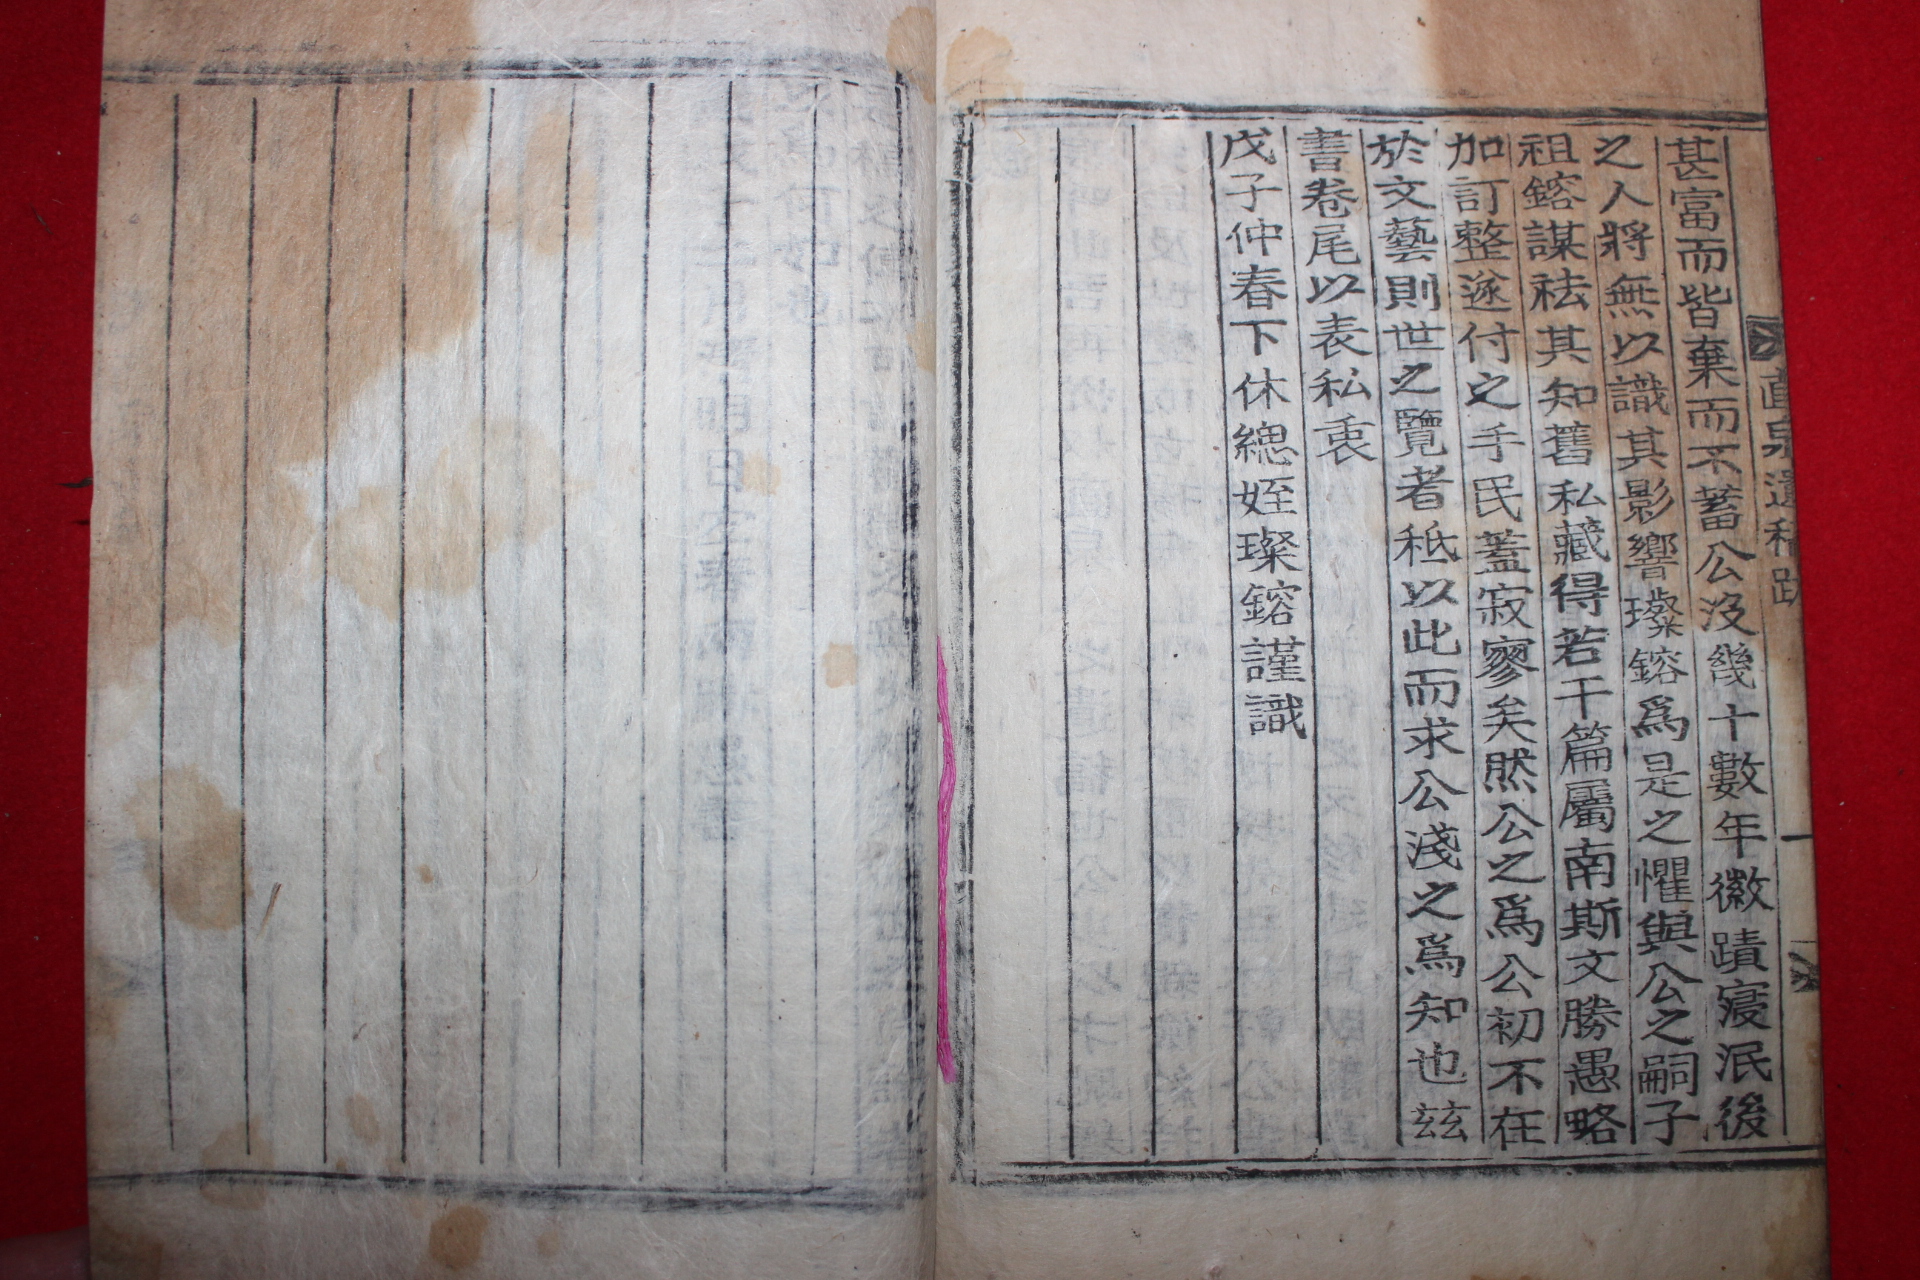 甚富而皆棄而不蓄公沒幾十數年徽蹟寖泯後
之人將無以識其影響璨鎔爲是之懼與公之嗣子
祖鎔謀祛其知舊私藏得若干篇屬南斯文勝愚略
加訂整遂付之手民蓋寂寥矣然公之爲公初不在
於文藝則世之覽者秪以此而求公淺之爲知也玆
書卷尾以表私衷
戊子仲春下休總姪璨鎔謹識
泉遺稿跋
一